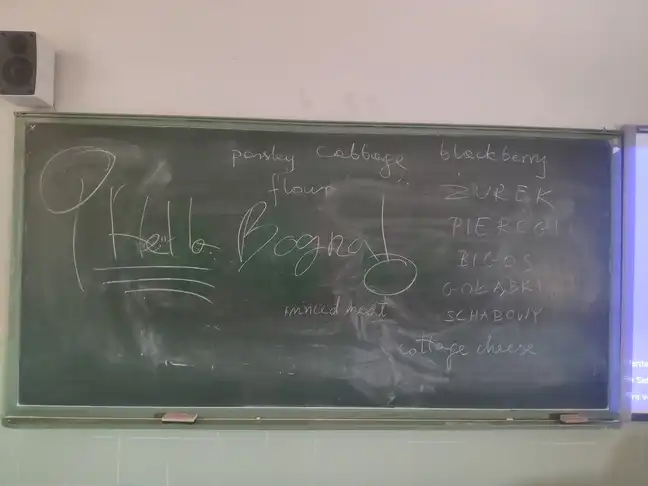 parsley cabbage blackberry
flour
¡Hello Bogna!
ŻUREK
PIEROGI
BIGOS
GOŁĄBKI
SCHABOWY
minced meat
cottage cheese